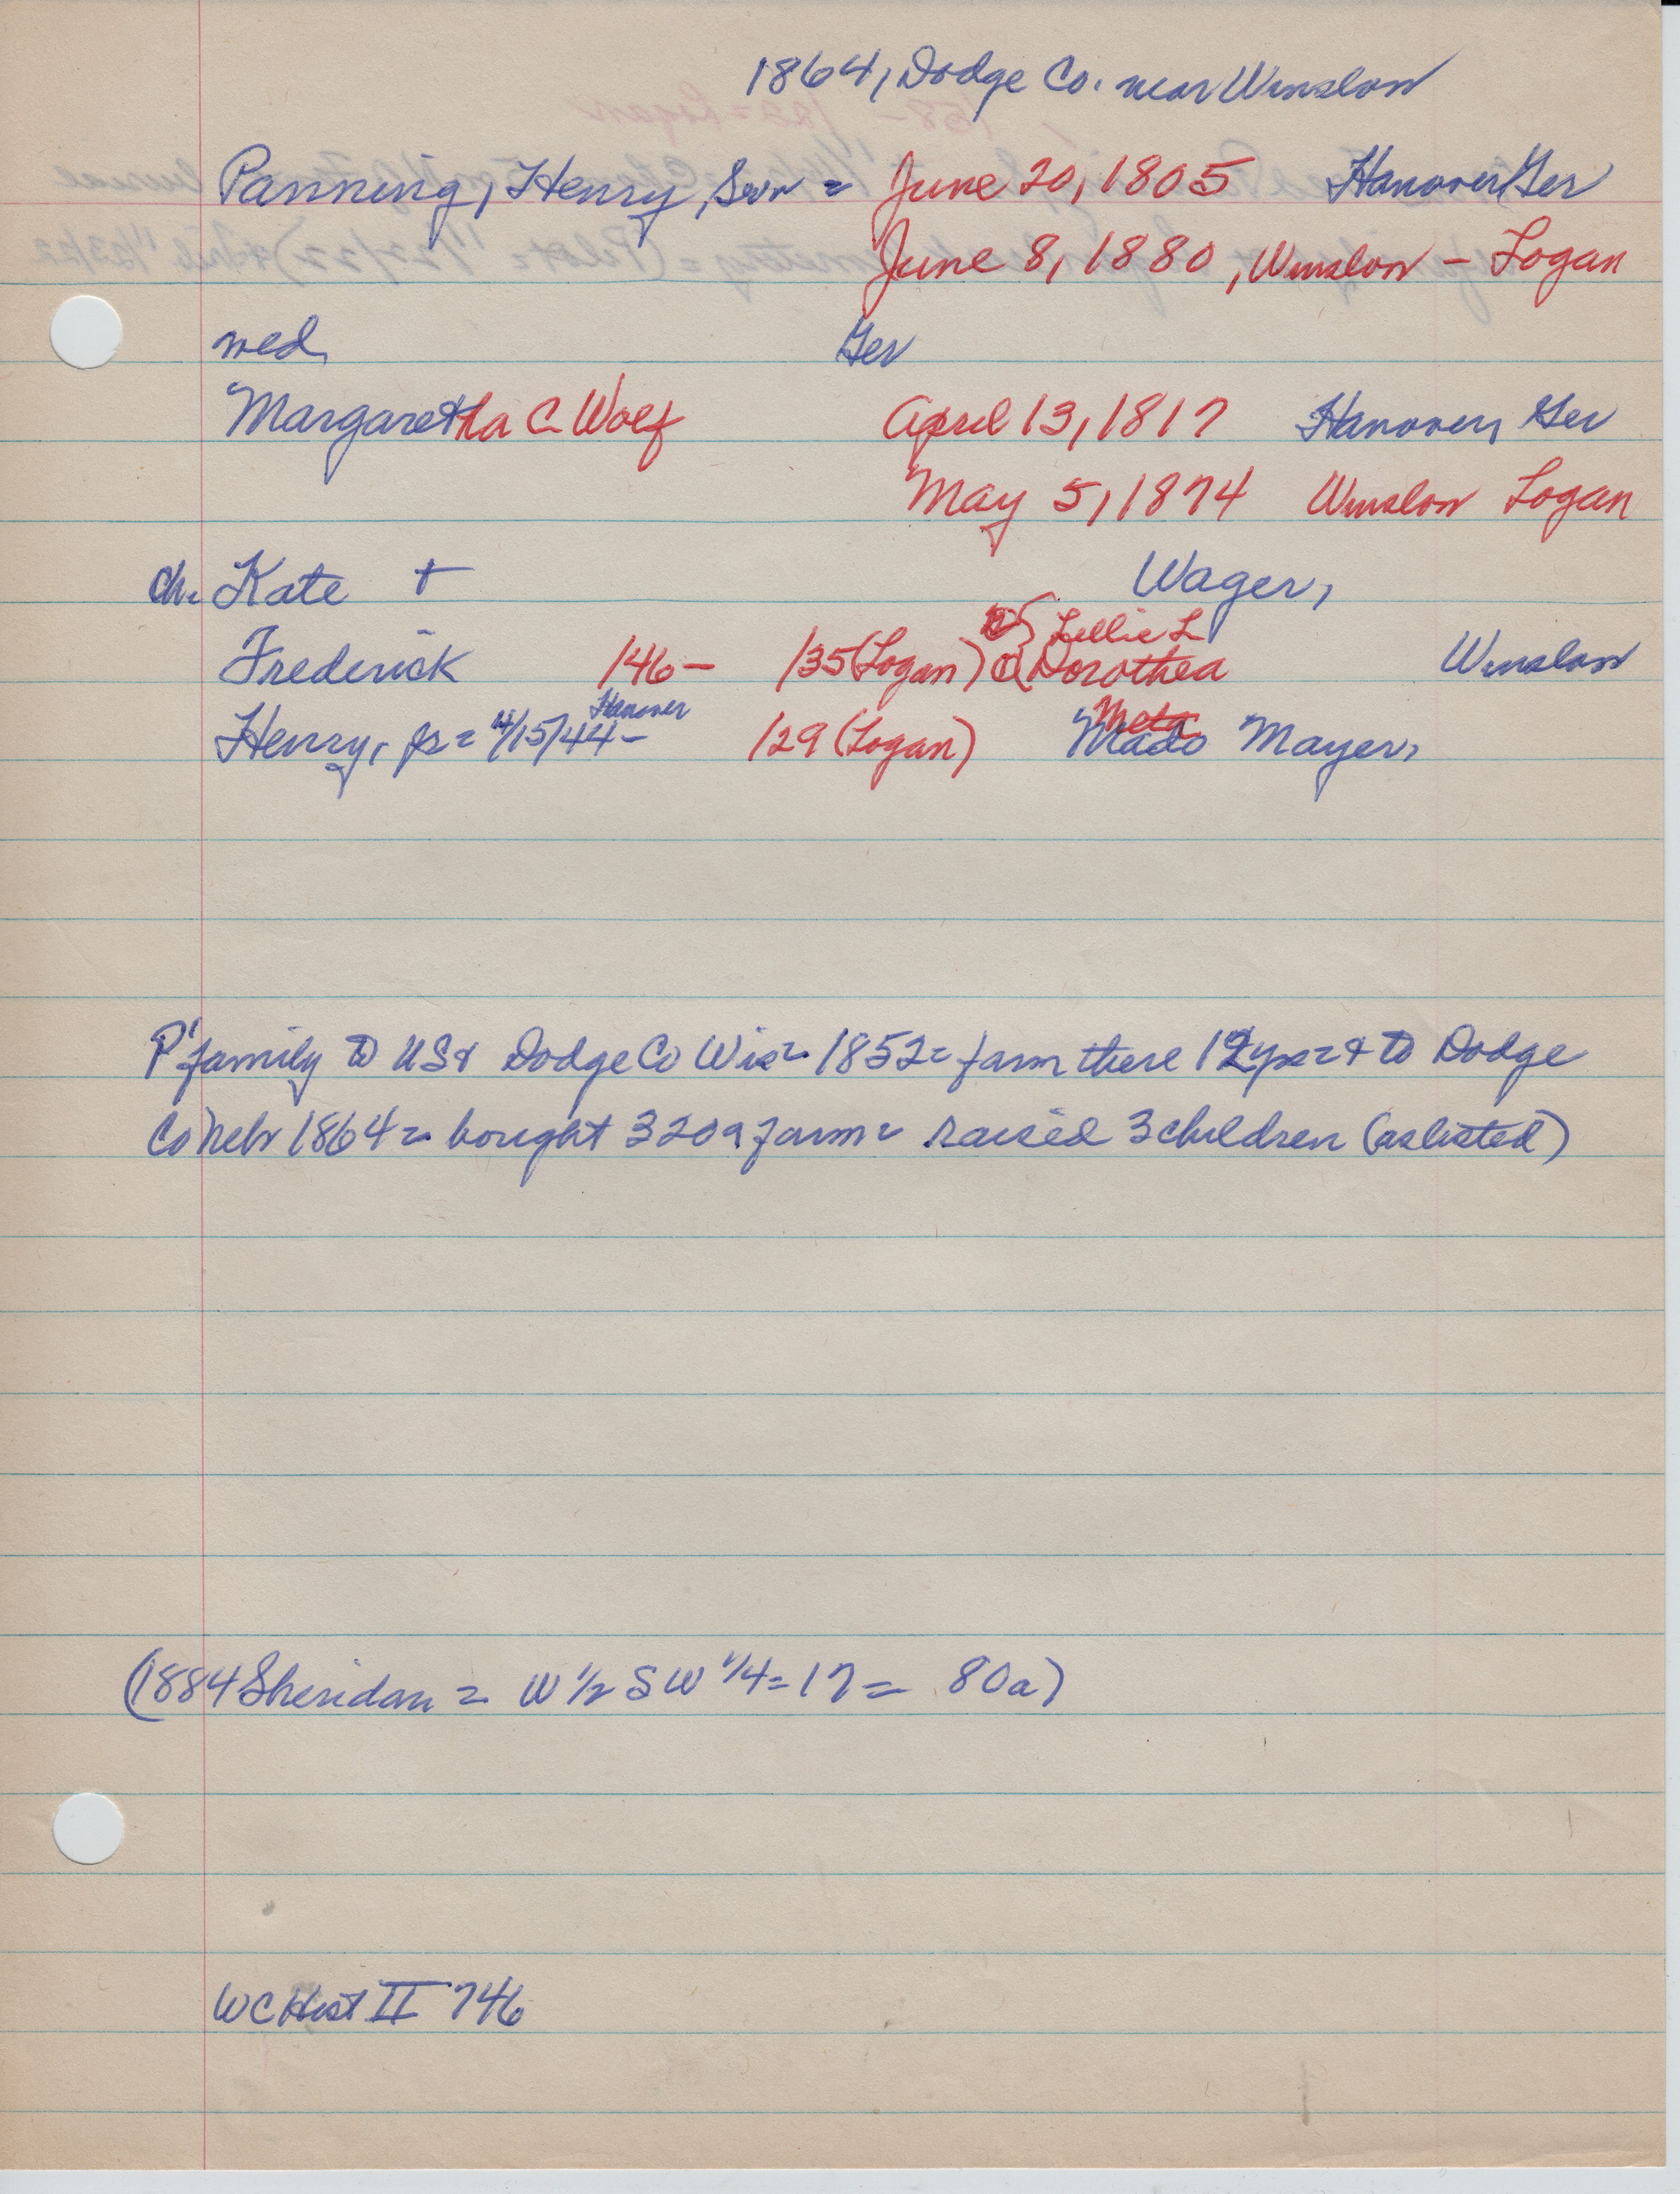 1864, Dodge Co. near Winslow
Panning, Henry, Senr = June 20, 1805 Hanover, Ger
June 8, 1880, Winslow - Logan
med, Ger
Margaretha C Wolf April 13, 1817 Hanover, Ger
May 5, 1874 Winslow Logan
ch. Kate + Wager,
Lillie L
Frederick 146- 135 (Logan) Dorothea Winslow
Hanover Meta
Henry, jr = 4/15/44- 129 (Logan) Mado Mayer,
P' family to US & Dodge Co Wis = 1852 = farm there 12 yrs = & to Dodge
Co Nebr 1864 = bought 320 a farm = raised 3 children (as listed)
(1884 Sheridan = W 1/2 SW 1/4 = 17 = 80a)
WC Hist II 746